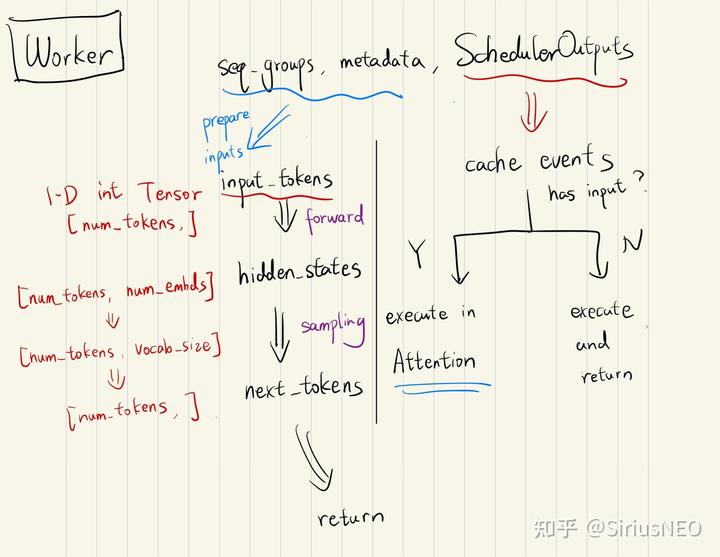 Worker
seq_groups, metadata, SchedulerOutputs
prepare
inputs
input_tokens
1-D int Tensor
[num_tokens,]
forward
hidden_states
[num_tokens, num_embds]
sampling
[num_tokens, vocab_size]
next_tokens
[num_tokens, ]
return
cache events
has input?
Y
N
execute in
Attention
execute
and
return
知乎 @SiriusNEO